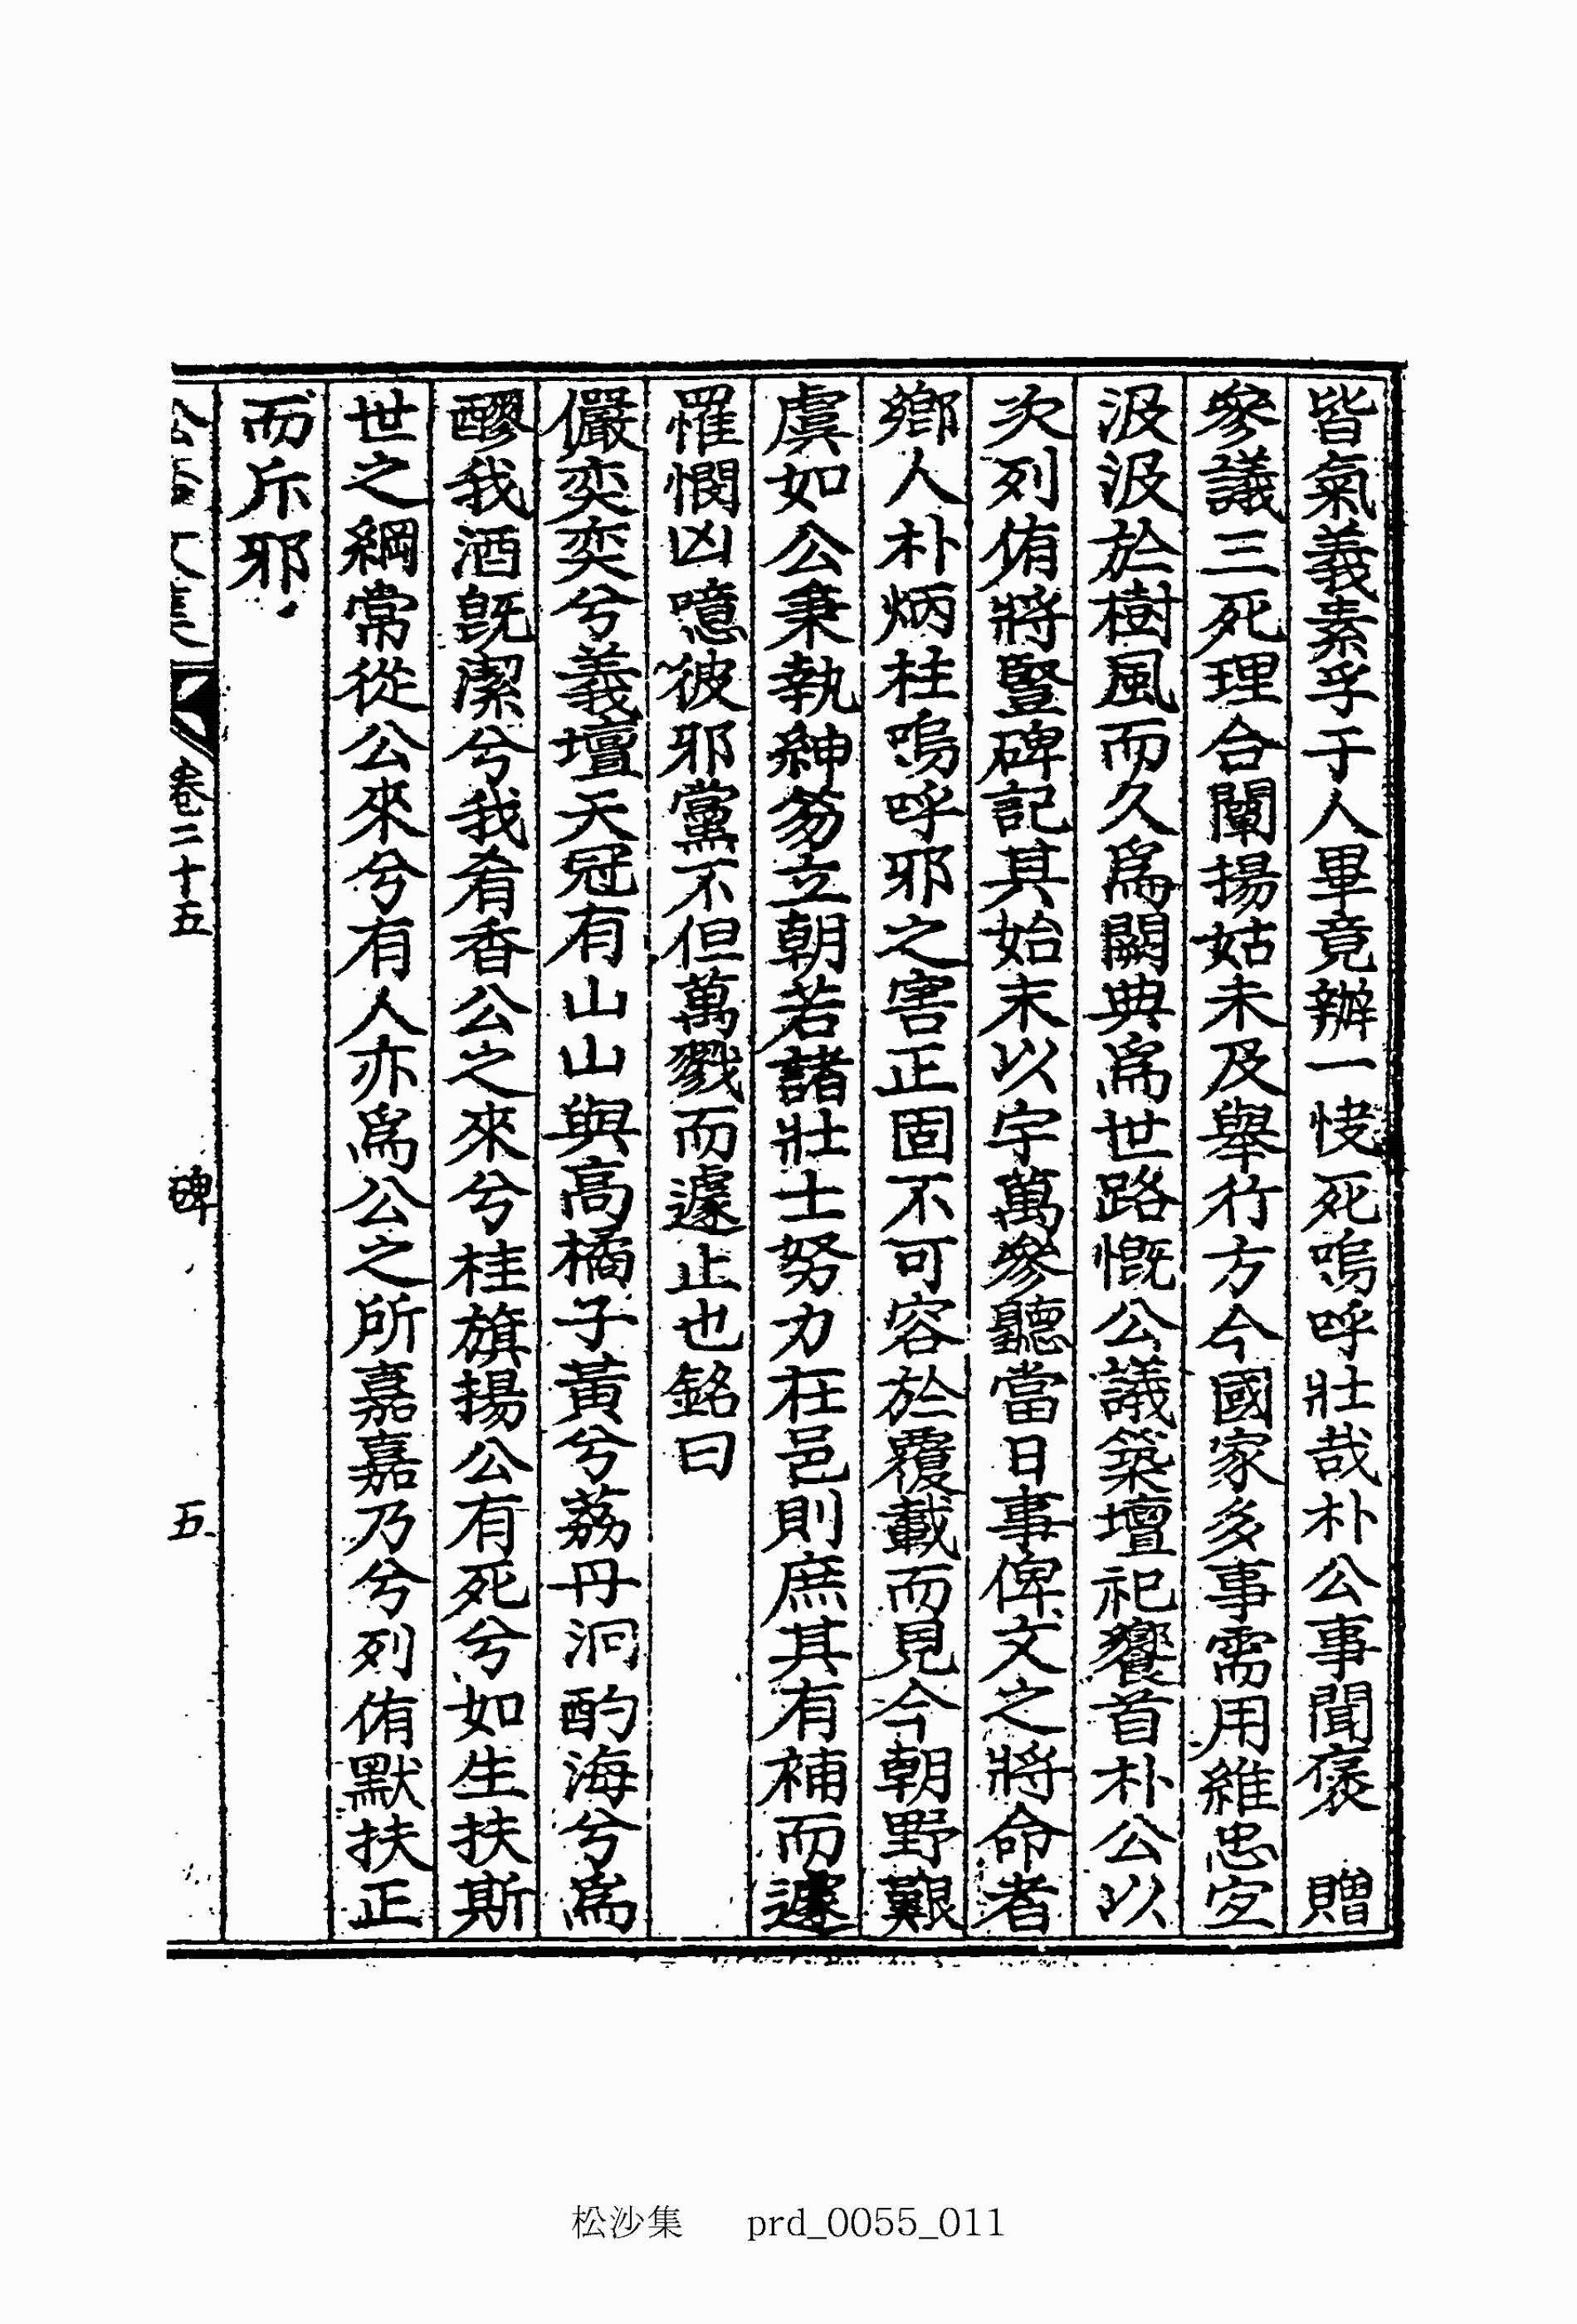 皆氣義素孚于人畢竟辦一恔死嗚呼壯哉朴公事聞褒　贈
參議三死理合闡揚姑未及舉行方今國家多事需用維忠宜
汲汲於樹風而久爲闕典爲世路慨公議築壇祀饗首朴公以
次列侑將豎碑記其始末以宇萬參聽當日事俾文之將命者
鄕人朴炳柱嗚呼邪之害正固不可容於覆載而見今朝野艱
虞如公秉執紳笏立朝若諸壯士努力在邑則庶其有補而遽
罹憫凶噫彼邪黨不但萬戮而遽止也銘曰
儼奕奕兮義壇天冠有山山與高橘子黃兮荔丹泂酌海兮爲
醪我酒旣潔兮我肴香公之來兮桂旗揚公有死兮如生扶斯
世之綱常從公來兮有人亦爲公之所嘉嘉乃兮列侑默扶正
而斥邪
卷二十五　碑　五
松沙集 prd_0055_011